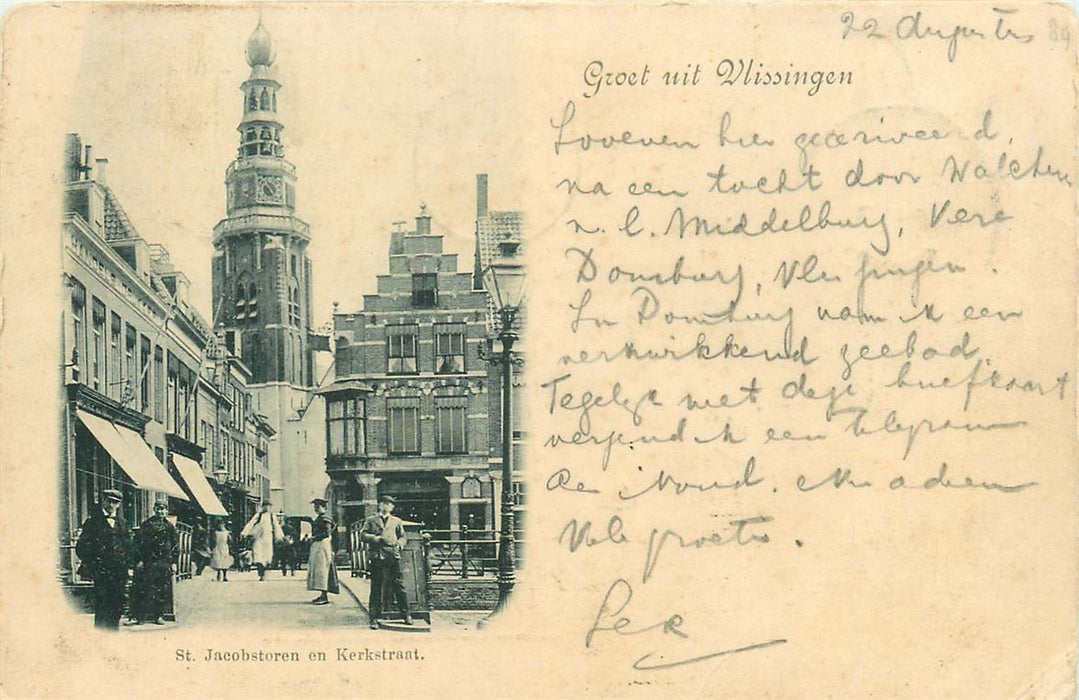 22 Augustus 89
Groet uit Vlissingen
Zoo even hier gearriveerd,
na een tocht door Walcheren
n. l. Middelburg, Vere
Domburg, Vlissingen.
In Domburg nam ik een
verkwikkend zeebad.
Tegelijk met deze briefkaart
verzend ik een telegram
Nu adieu
Vele groeten.
St. Jacobstoren en Kerkstraat.